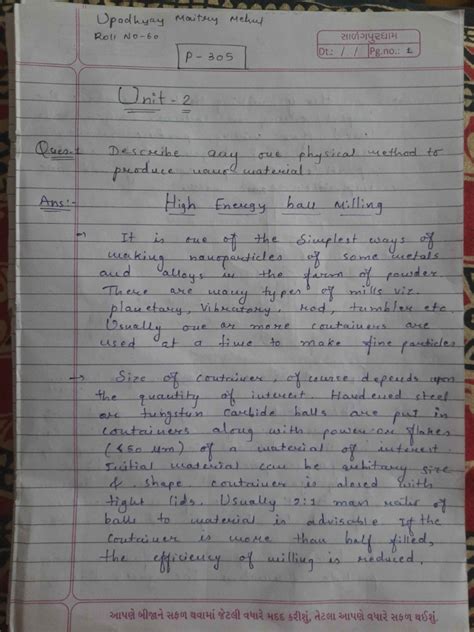 Upadhyay Maitry Mehul
Roll No-60
P-305
સારંગપુરધામ
Dt.: / / Pg.no.: 1
Unit-2
Ques:1 Describe any one physical method to
produce nano material.
Ans:- High Energy ball Milling
→ It is one of the simplest ways of
making nanoparticles of some metals
and alloys in the form of powder.
There are many types of mills viz.
planetary, vibratory, rod, tumbler etc.
Usually one or more containers are
used at a time to make fine particles
→ Size of container, of course depends upon
the quantity of interest. Hardened steel
or tungsten carbide balls are put in
containers along with power or flakes
(<50 µm) of a material of interest.
Initial material can be arbitary size
& shape container is closed with
tight lids. Usually 2:1 mass ratio of
balls to material is advisable If the
container is more than half filled,
the efficiency of milling is reduced.
આપણે બીજાને સફળ થવામાં જેટલી વધારે મદદ કરીશું, તેટલા આપણે વધારે સફળ થઈશું.